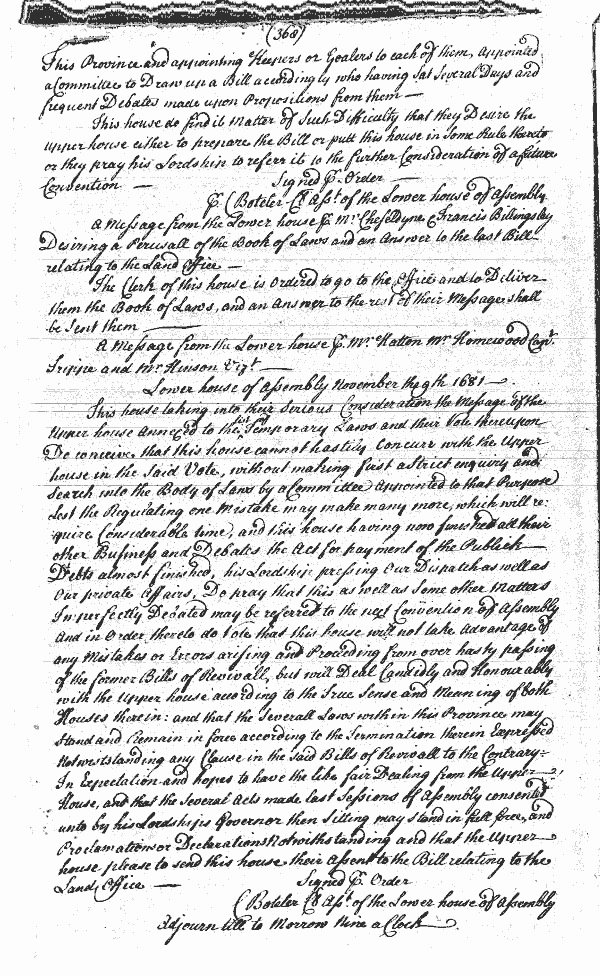 (368)
This Province and appointing Keepers or Goalers to each of them, Appointed
a Committee to Draw up a Bill accordingly who having Sat Several Days and
frequent Debates made upon Propositions from them —
This house do find it matter of Such Difficulty that they Desire the
upper house either to prepare the Bill or putt this house in Some Rule thereto
or they pray his Lordship to referr it to the further Consideration of a future
Convention —
Signed P. Order —
P. C Boteler Cl Asst. of the Lower house of Assembly
A Message from the Lower house P. Mr. Cheseldyne & Francis Billingsley
Desiring a Perusall of the Book of Laws and an Answer to the last Bill
relating to the Land Office —
The Clerk of this house is Ordered to go to the Office and to Deliver
them the Book of Laws, and an Answer to the rest of their Message shall
be Sent them —
A Message from the Lower house P. Mr. Hatton Mr. Homewood Capt.
Trippe and Mr. Hinson Vizt —
Lower house of Assembly November the 9th 1681 —.
This house taking into their Serious Consideration the Message of the
Upper house Annexed to the list of Temporary Laws and their Vote thereupon
Do conceive that this house cannot hastily Concurr with the Upper
house in the Said Vote, without making first a Strict enquiry and
Search into the Body of Laws by a Committee Appointed to that Purpose
Lest the Regulating one Mistake may make many more, which will re:
quire Considerable time, and this house having now finished all their
other Business and Debates the Act for payment of the Publick
Debts almost finished, his Lordship pressing Our Dispatch as well as
Our private Affairs, Do pray that this as well as Some other Matters
Imperfectly Debated may be referred to the next Convention of Assembly
And in Order thereto do Vote that this house will not take Advantage of
any Mistakes or Errors arising and Proceeding from over hasty passing
of the former Bills of Revivall, but will Deal Candidly and Honourably
with the Upper house according to the True Sense and Meaning of both
Houses therein: and that the Severall Laws within this Province may
Stand and Remain in force according to the Termination therein Expressed
Notwithstanding any Clause in the Said Bills of Revivall to the Contrary:
In Expectation and hopes to have the like fair Dealing from the Upper
House, and that the Several Acts made last Sessions of Assembly consented
unto by his Lordships Governor then Sitting may Stand in full force, and
Proclamations or Declarations Notwithstanding and that the Upper
house please to send this house their Assent to the Bill relating to the
Land Office —
Signed P. Order
C Boteler Cl Asst. of the Lower house of Assembly
Adjourn till to Morrow Nine a Clock —.